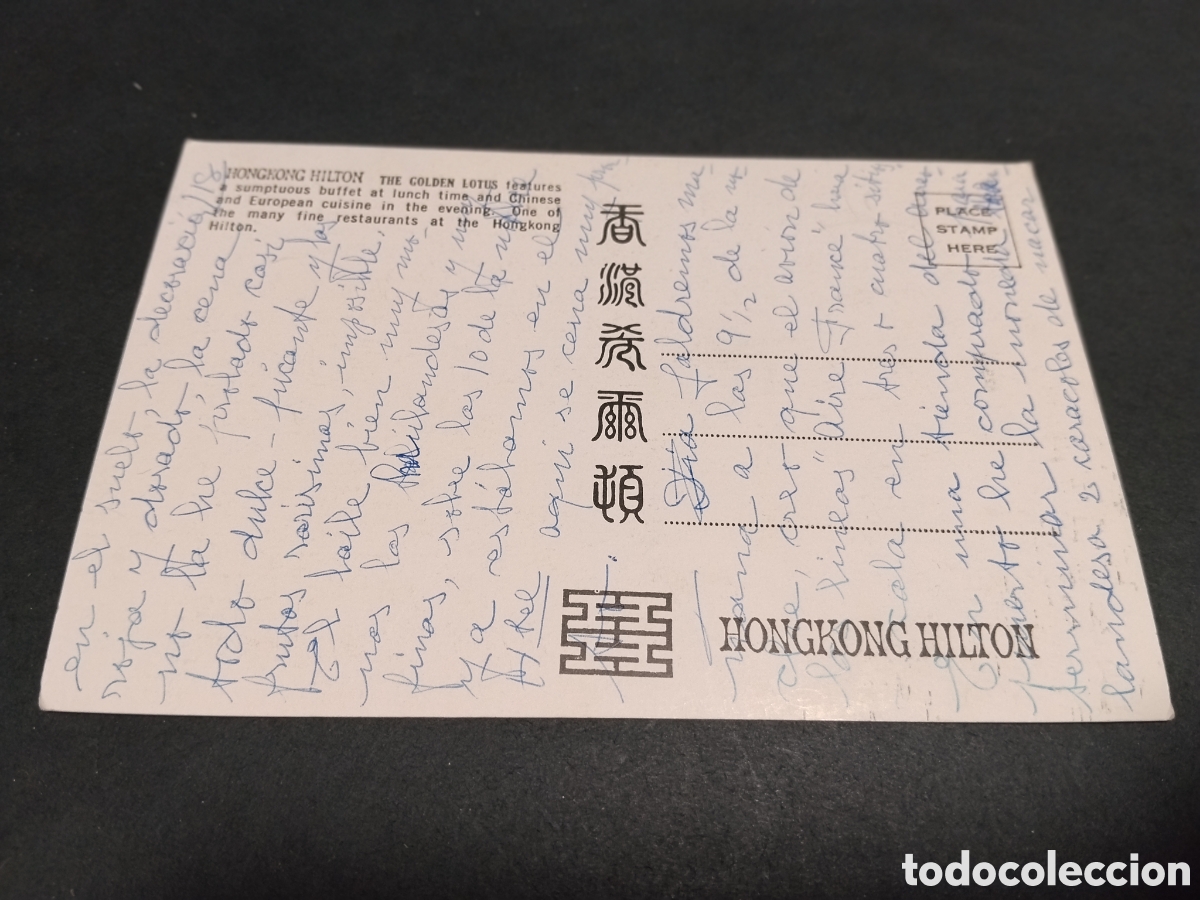 HONGKONG HILTON THE GOLDEN LOTUS features
a sumptuous buffet at lunch time and Chinese
and European cuisine in the evening. One of
the many fine restaurants at the Hongkong
Hilton.
香港希爾頓
PLACE
STAMP
HERE
HONGKONG HILTON
en el suelo, la decoració
roja y dorado, la cena
no la he probado casi
todo dulce-picante y los
frutos rarisimos, imposible.
El baile bien muy mo-
nas las
finas, sobre las 10 de la noche
ya estábamos en el
Hotel aqui se cena muy
Dia Saldremos ma-
ñana a las 9½ de la
che, creo que el avion de
lineas "Aire France" hace
escala en tres o cuatro sitios
En una tienda del
puerto he comprado
terminar la moneda
landesa 2 caracoles de nacar
todocoleccion